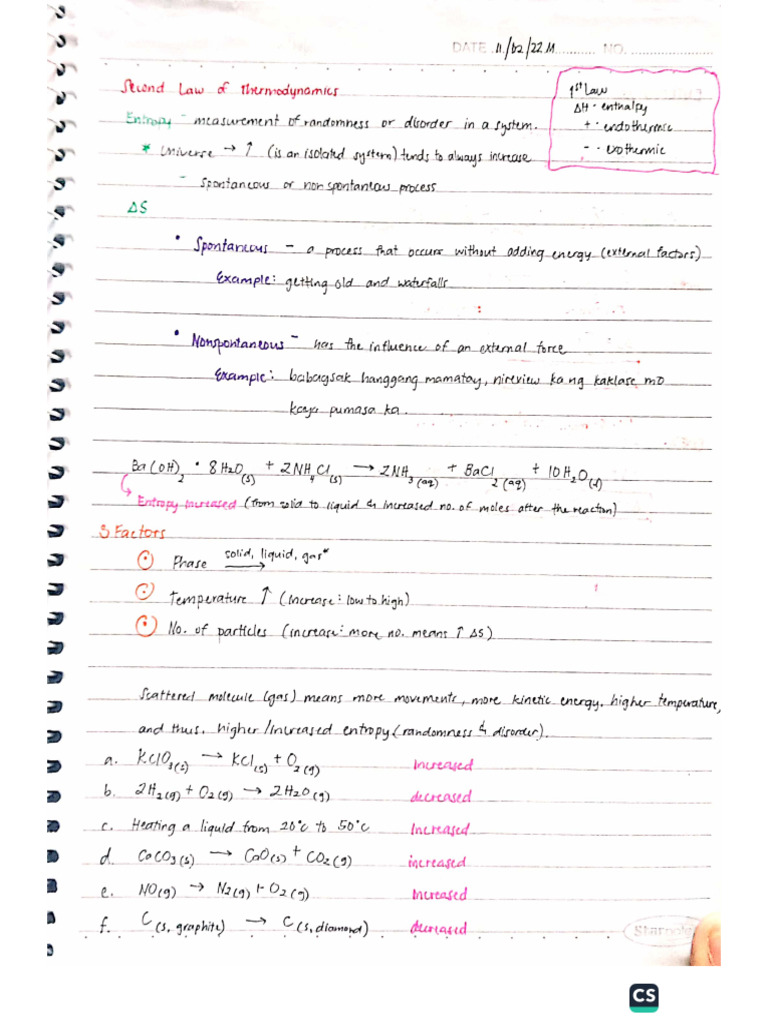 DATE 11/02/22 M NO.
Second Law of Thermodynamics
1st Law
ΔH - enthalpy
+ - endothermic
- - exothermic
Entropy - measurement of randomness or disorder in a system.
* Universe → ↑ (is an isolated system) tends to always increase
- Spontaneous or nonspontaneous process
ΔS
• Spontaneous - a process that occurs without adding energy (external factors)
Example: getting old and waterfalls
• Nonspontaneous - has the influence of an external force
Example: babagsak hanggang mamatay, nireview ka ng kaklase mo
kaya pumasa ka.
Ba(OH)2 • 8H2O(s) + 2NH4Cl(s) → 2NH3(aq) + BaCl2(aq) + 10H2O(l)
Entropy Increased (from solid to liquid & increased no. of moles after the reaction)
3 Factors
1 Phase solid, liquid, gas*
2 Temperature ↑ (increase: low to high)
3 No. of particles (increase: more no. means ↑ ΔS)
Scattered molecule (gas) means more movements, more kinetic energy, higher temperature,
and thus, higher/increased entropy (randomness & disorder).
a. KClO3(s) → KCl(s) + O2(g) Increased
b. 2H2(g) + O2(g) → 2H2O(g) decreased
c. Heating a liquid from 20°C to 50°C Increased
d. CaCO3(s) → CaO(s) + CO2(g) increased
e. NO(g) → N2(g) + O2(g) Increased
f. C(s, graphite) → C(s, diamond) decreased
CS